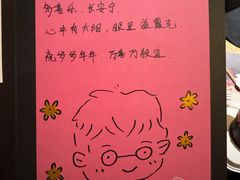 多喜乐，长安宁
心中有太阳，眼里益露光
祝岁岁年年，万喜万般宜